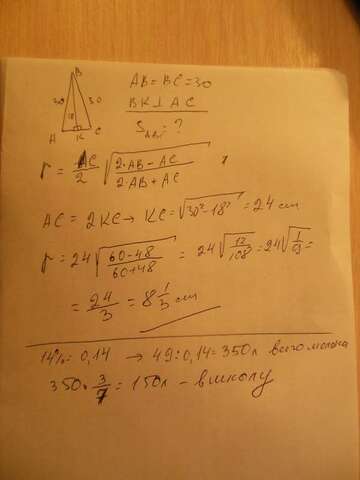 B
30 30
18
A K C
AB = BC = 30
BK ⊥ AC
r = AC/2 √(2·AB - AC)/(2·AB + AC)
AC = 2KC → KC = √30² - 18² = 24 см
r = 24 √(60-48)/(60+48) = 24 √12/108 = 24 √1/9 =
= 24/3 = 8 1/3 см
14% = 0,14 → 49 : 0,14 = 350 л всего молока
350 · 3/7 = 150 л - в школу